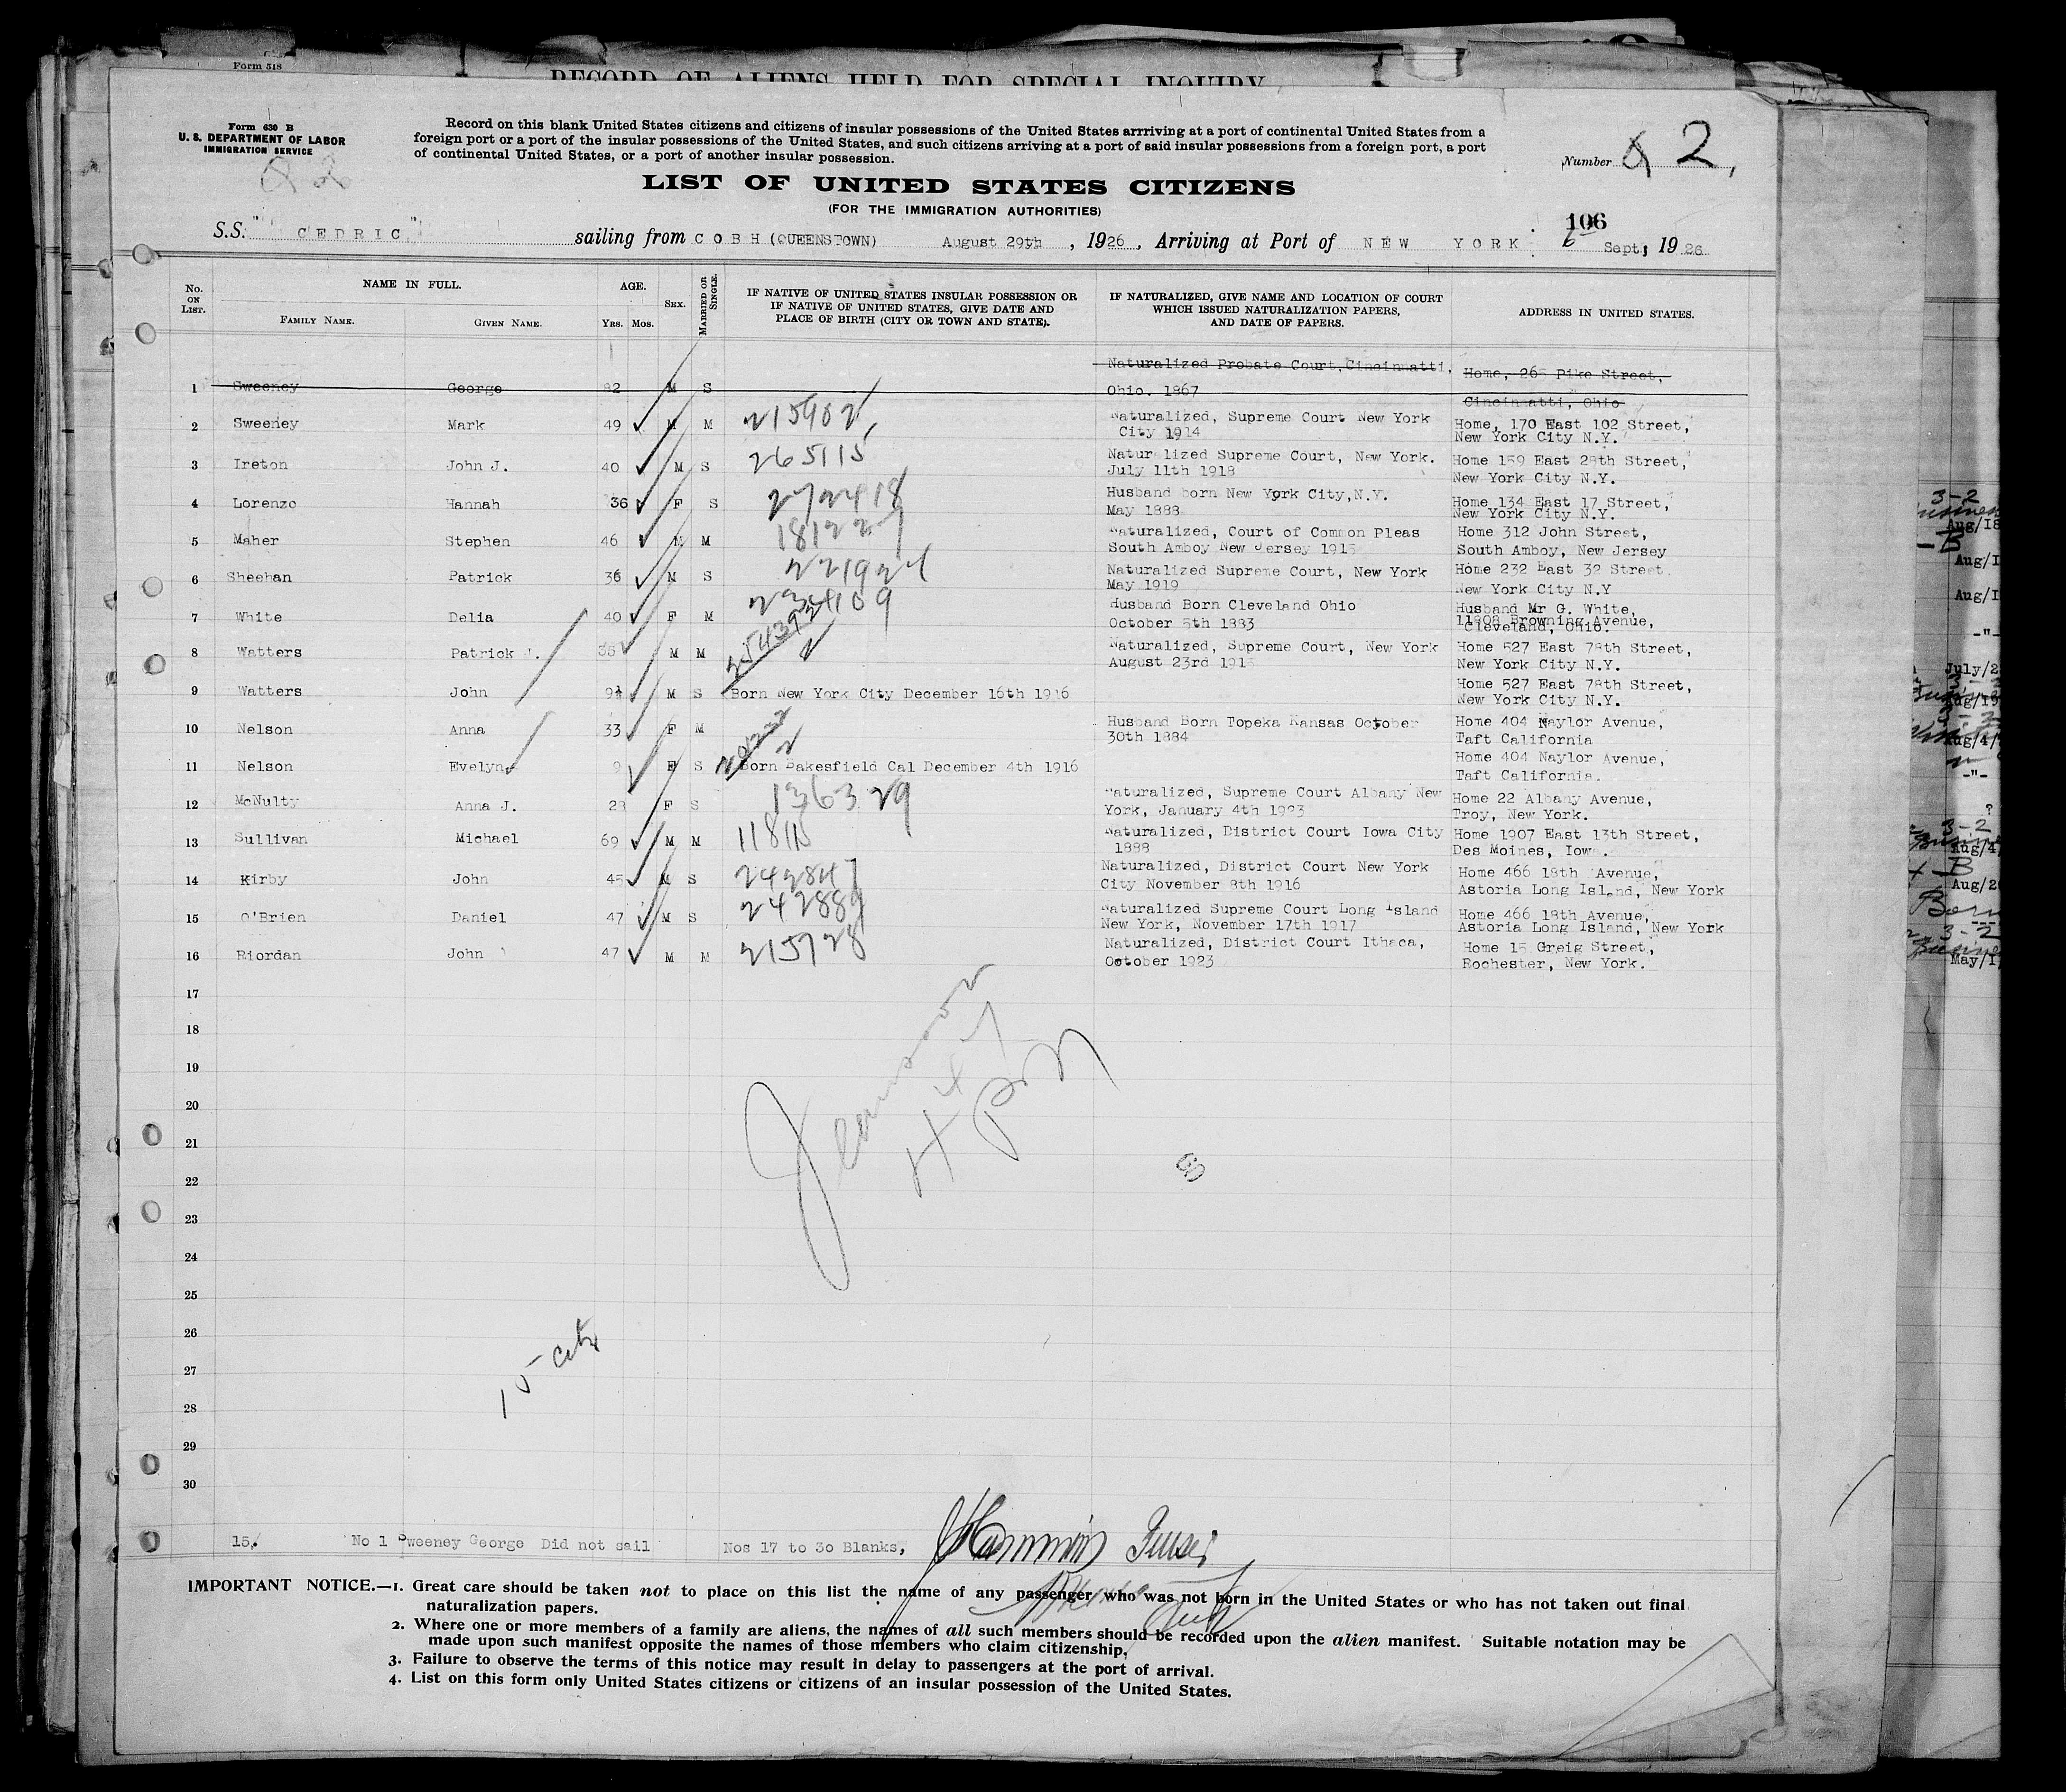 Form 518
RECORD OF ALIENS HELD FOR SPECIAL INQUIRY
Form 630 B
U. S. DEPARTMENT OF LABOR
IMMIGRATION SERVICE
Record on this blank United States citizens and citizens of insular possessions of the United States arrriving at a port of continental United States from a
foreign port or a port of the insular possessions of the United States, and such citizens arriving at a port of said insular possessions from a foreign port, a port
of continental United States, or a port of another insular possession.
Number 2
LIST OF UNITED STATES CITIZENS
(FOR THE IMMIGRATION AUTHORITIES)
106
S.S. "CEDRIC" sailing from COBH (QUEENSTOWN) August 29th, 1926, Arriving at Port of NEW YORK 6 Sept, 1926
No. ON LIST. NAME IN FULL. FAMILY NAME. GIVEN NAME. AGE. YRS. MOS. SEX. MARRIED OR SINGLE.
IF NATIVE OF UNITED STATES INSULAR POSSESSION OR
IF NATIVE OF UNITED STATES, GIVE DATE AND
PLACE OF BIRTH (CITY OR TOWN AND STATE).
IF NATURALIZED, GIVE NAME AND LOCATION OF COURT
WHICH ISSUED NATURALIZATION PAPERS,
AND DATE OF PAPERS.
ADDRESS IN UNITED STATES.
1 Sweeney George 82 M S Naturalized Probate Court, Cincinnatti, Home, 265 Pike Street,
Ohio. 1867 Cincinnatti, Ohio
2 Sweeney Mark 49 M M 215902 Naturalized, Supreme Court New York Home, 170 East 102 Street,
City 1914 New York City N.Y.
3 Ireton John J. 40 M S 265115 Natur lized Supreme Court, New York. Home 159 East 28th Street,
July 11th 1918 New York City N.Y.
4 Lorenzo Hannah 36 F S 272418 Husband born New York City, N.Y. Home 134 East 17 Street,
May 1888 New York City N.Y.
5 Maher Stephen 46 M M 181227 Naturalized, Court of Common Pleas Home 312 John Street,
South Amboy New Jersey 1915 South Amboy, New Jersey
6 Sheehan Patrick 36 M S 221924 Naturalized Supreme Court, New York Home 232 East 32 Street,
May 1919 New York City N.Y
7 White Delia 40 F M Husband Born Cleveland Ohio Husband Mr G. White,
October 5th 1883 11808 Browning Avenue,
Cleveland, Ohio.
8 Watters Patrick J. 35 M M Naturalized, Supreme Court, New York Home 527 East 78th Street,
August 23rd 191 New York City N.Y.
9 Watters John 9½ M S Born New York City December 16th 1916 Home 527 East 78th Street,
New York City N.Y.
10 Nelson Anna 33 F M Husband Born Topeka Kansas October Home 404 Naylor Avenue,
30th 1884 Taft California
11 Nelson Evelyn 9 F S Born Bakesfield Cal December 4th 1916 Home 404 Naylor Avenue,
Taft California.
12 McNulty Anna J. 23 F S 136329 Naturalized, Supreme Court Albany New Home 22 Albany Avenue,
York, January 4th 1923 Troy, New York.
13 Sullivan Michael 69 M M Naturalized, District Court Iowa City Home 1907 East 13th Street,
1888 Des Moines, Iowa.
14 Kirby John 45 M S 242847 Naturalized, District Court New York Home 466 18th Avenue,
City November 8th 1916 Astoria Long Island, New York
15 O'Brien Daniel 47 M S 242889 Naturalized Supreme Court Long Island Home 466 18th Avenue,
New York, November 17th 1917 Astoria Long Island, New York
16 Riordan John 47 M M 215728 Naturalized, District Court Ithaca, Home 15 Greig Street,
October 1923 Rochester, New York.
17
18
19
20
21
22
23
24
25
26
27
28
29
30
60
15 cit
15. No 1 Sweeney George Did not sail Nos 17 to 30 Blanks,
IMPORTANT NOTICE.—1. Great care should be taken not to place on this list the name of any passenger who was not born in the United States or who has not taken out final
naturalization papers.
2. Where one or more members of a family are aliens, the names of all such members should be recorded upon the alien manifest. Suitable notation may be
made upon such manifest opposite the names of those members who claim citizenship,
3. Failure to observe the terms of this notice may result in delay to passengers at the port of arrival.
4. List on this form only United States citizens or citizens of an insular possession of the United States.